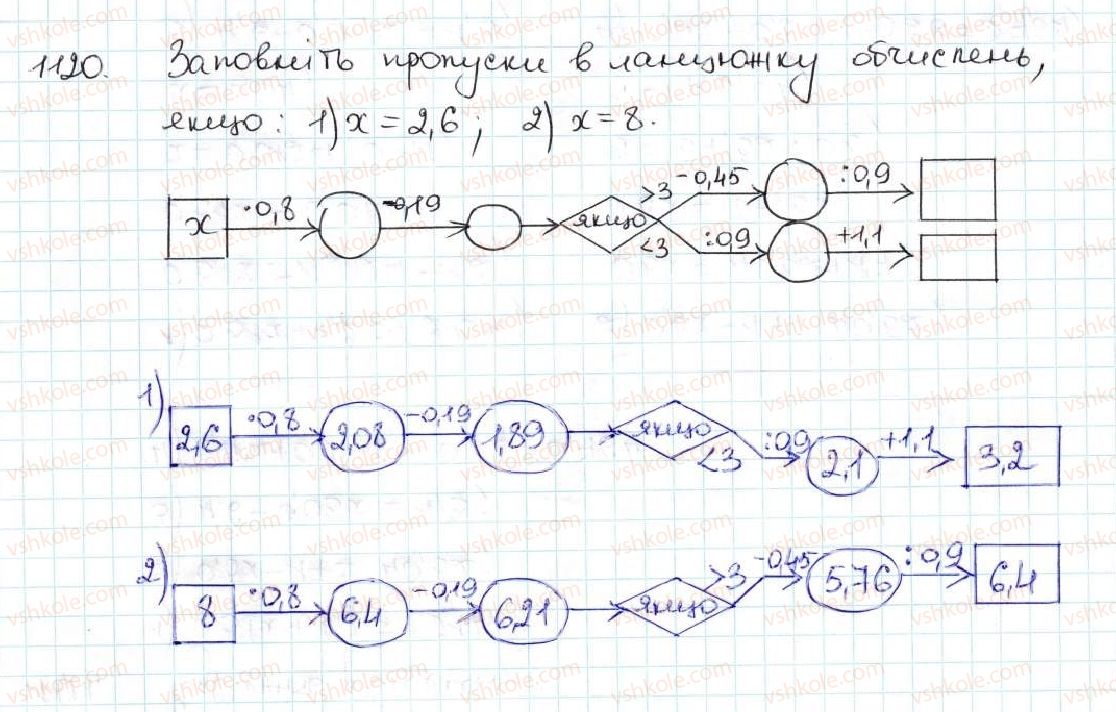 1120. Заповніть пропуски в ланцюжку обчислень,
якщо: 1) x = 2,6; 2) x = 8.
x ·0,8 -0,19 якщо >3 -0,45 :0,9
<3 :0,9 +1,1
1) 2,6 ·0,8 2,08 -0,19 1,89 якщо <3 :0,9 2,1 +1,1 3,2
2) 8 ·0,8 6,4 -0,19 6,21 якщо >3 -0,45 5,76 :0,9 6,4
vshkole.com